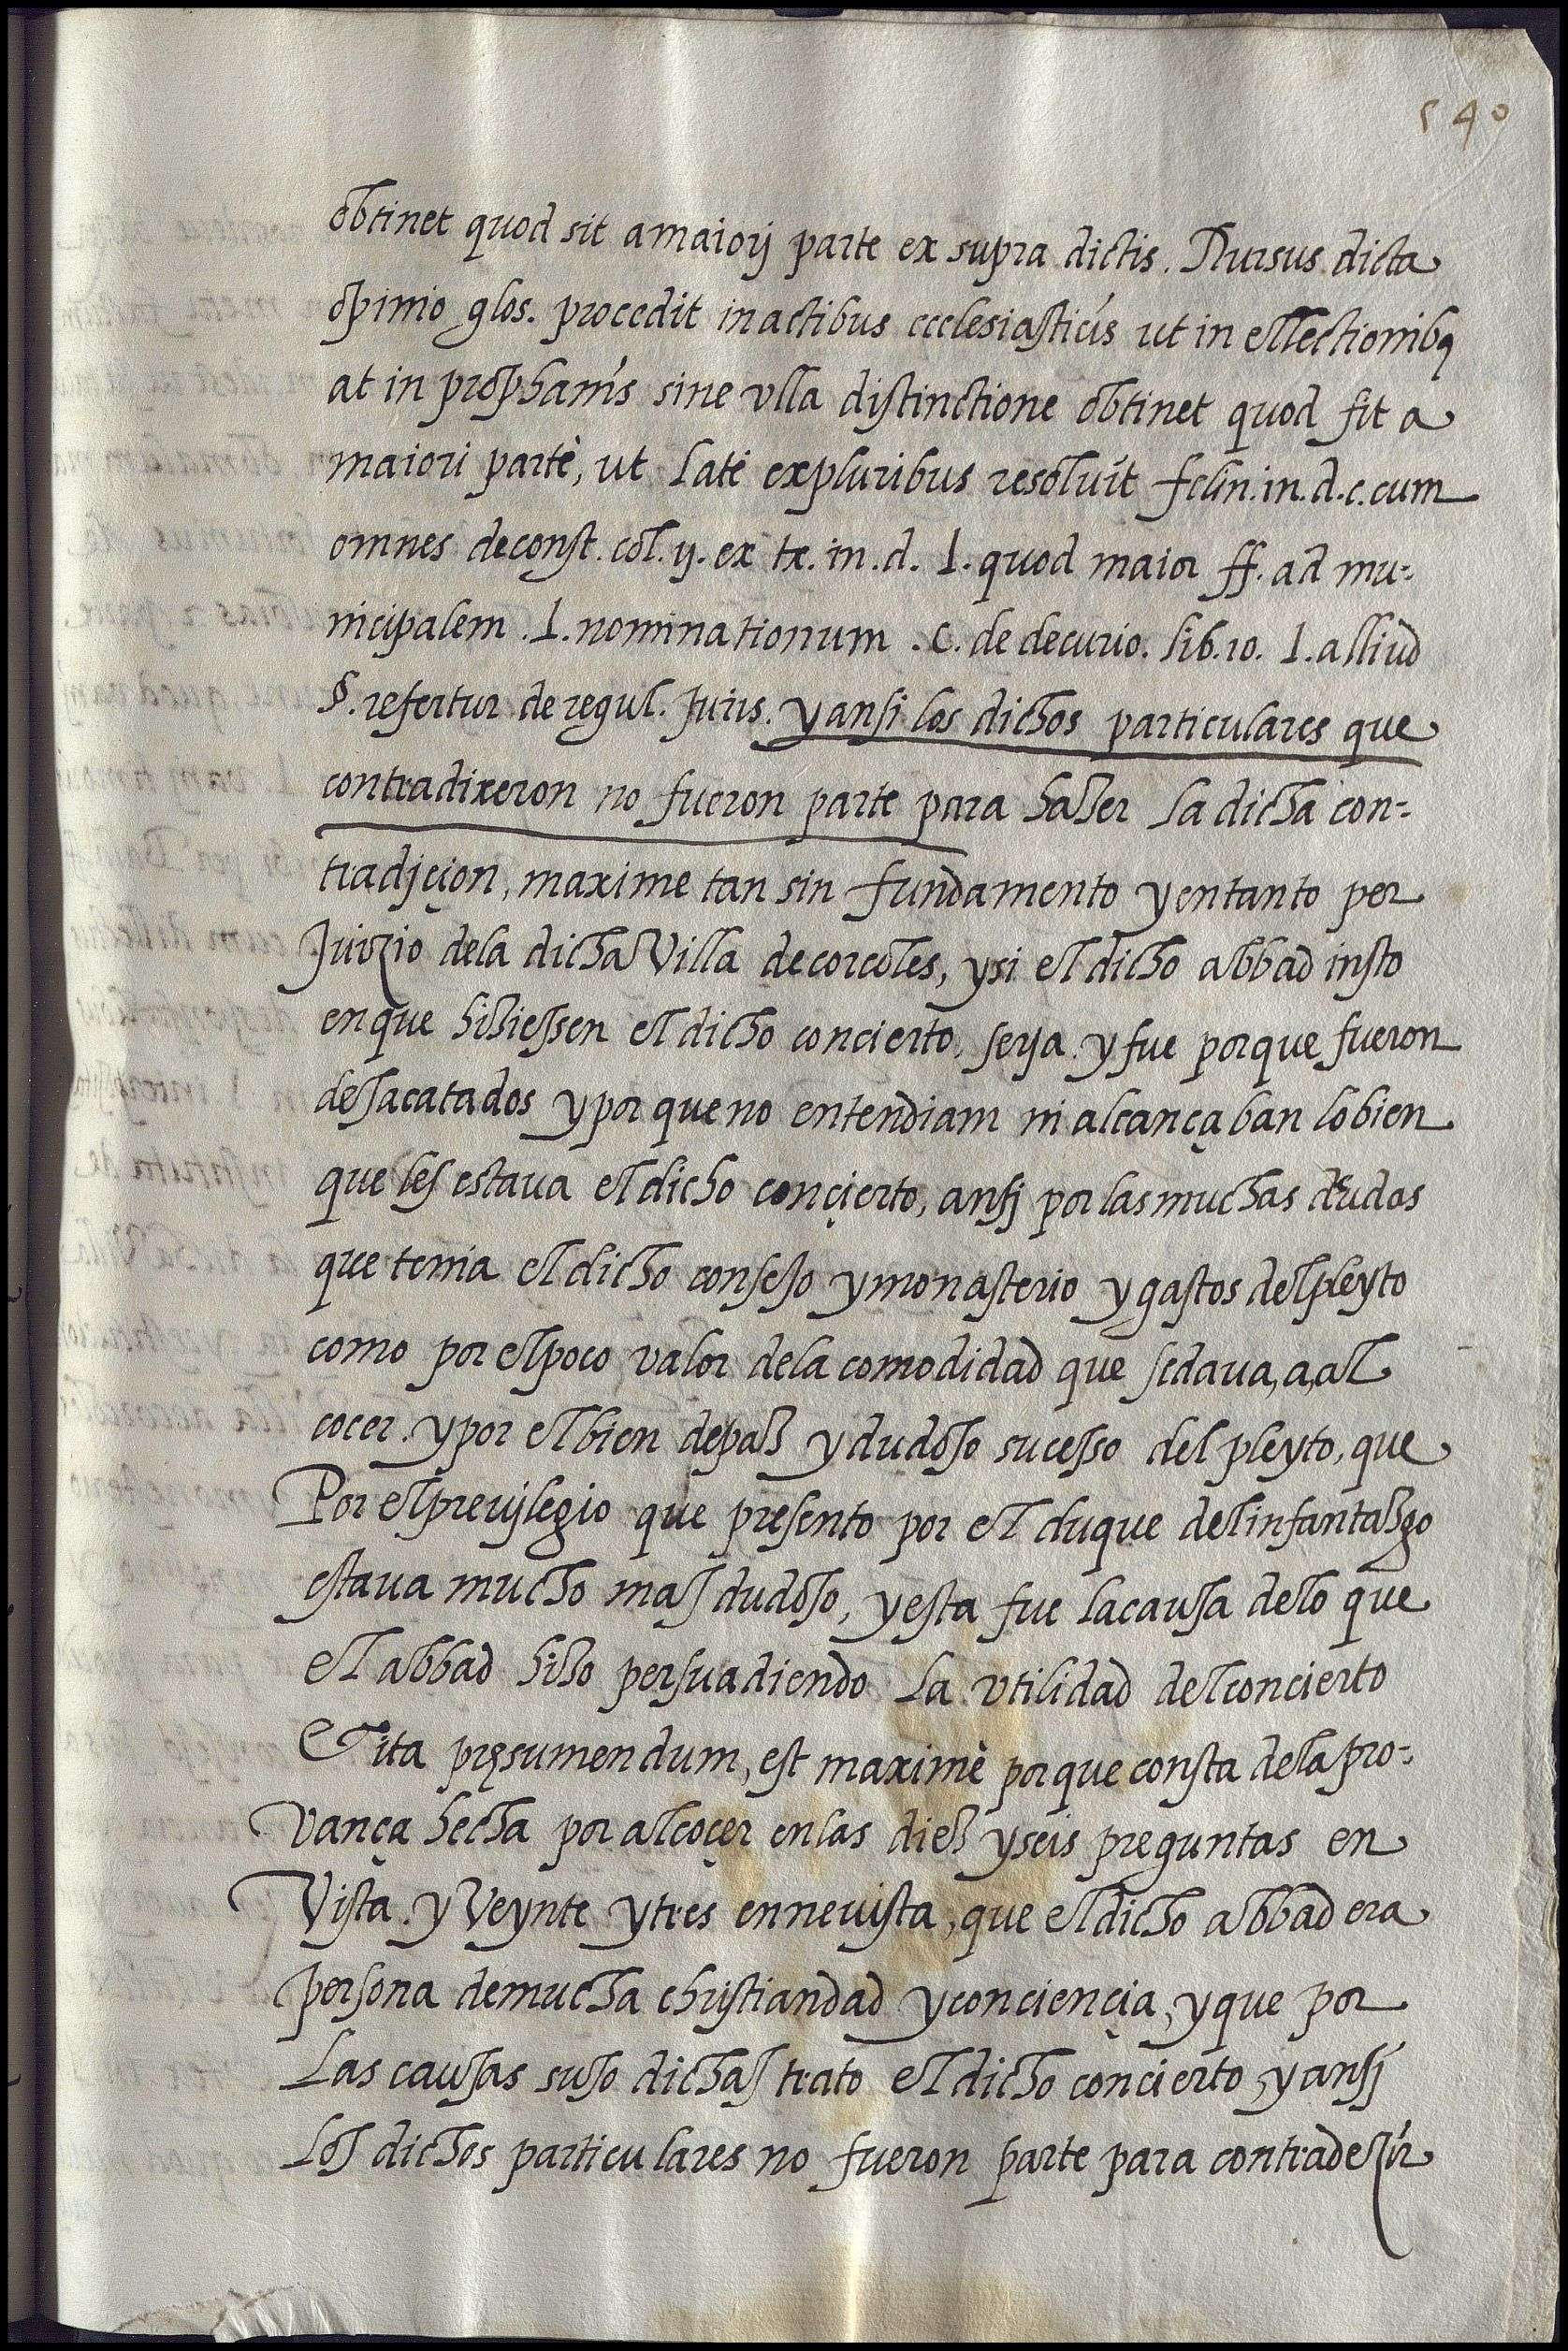 540
obtinet quod sit a maiorj parte ex supra dictis. Rursus dicta
opinio glos. procedit in actibus ecclesiasticis ut in ellectionibq
at in prophanis sine vlla distinctione obtinet quod fit a
maiori parte, ut late ex pluribus resoluit felin. in. d. c. cum
omnes de const. col. ij. ex tx. in. d. l. quod maior ff. ad mu-
nicipalem. l. nominationum. C. de decurio. lib. 10. l. alliud
§. refertur de regul. Juris. y ansi los dichos particulares que
contradixeron no fueron parte para hazer la dicha con-
tradiçion, maxime tan sin fundamento y en tanto per
Juizio de la dicha Villa de corcoles, y si el dicho abbad insto
en que hiziessen el dicho concierto, serja. y fue porque fueron
desacatados y por que no entendiam ni alcançaban lo bien
que les estaua el dicho conçierto, ansj por las muchas deudas
que tenia el dicho consejo y monasterio y gastos del pleyto
como por el poco valor de la comodidad que se daua, a, al
cocer. y por el bien de paz y dudoso sucesso del pleyto, que
Por el preuilegio que presento por el duque del infantazgo
estaua mucho mas dudoso, y esta fue la causa de lo que
el abbad hizo persuadiendo la vtilidad del concierto
Et ita pręsumendum, est maximè porque consta de la pro-
vança hecha por alcoçer en las diez y seis preguntas en
Vista. y Veynte y tres en reuista, que el dicho abbad era
persona de mucha christiandad y conciençia, y que por
Las causas suso dichas trato el dicho concierto, y ansj
Los dichos particulares no fueron parte para contradezir